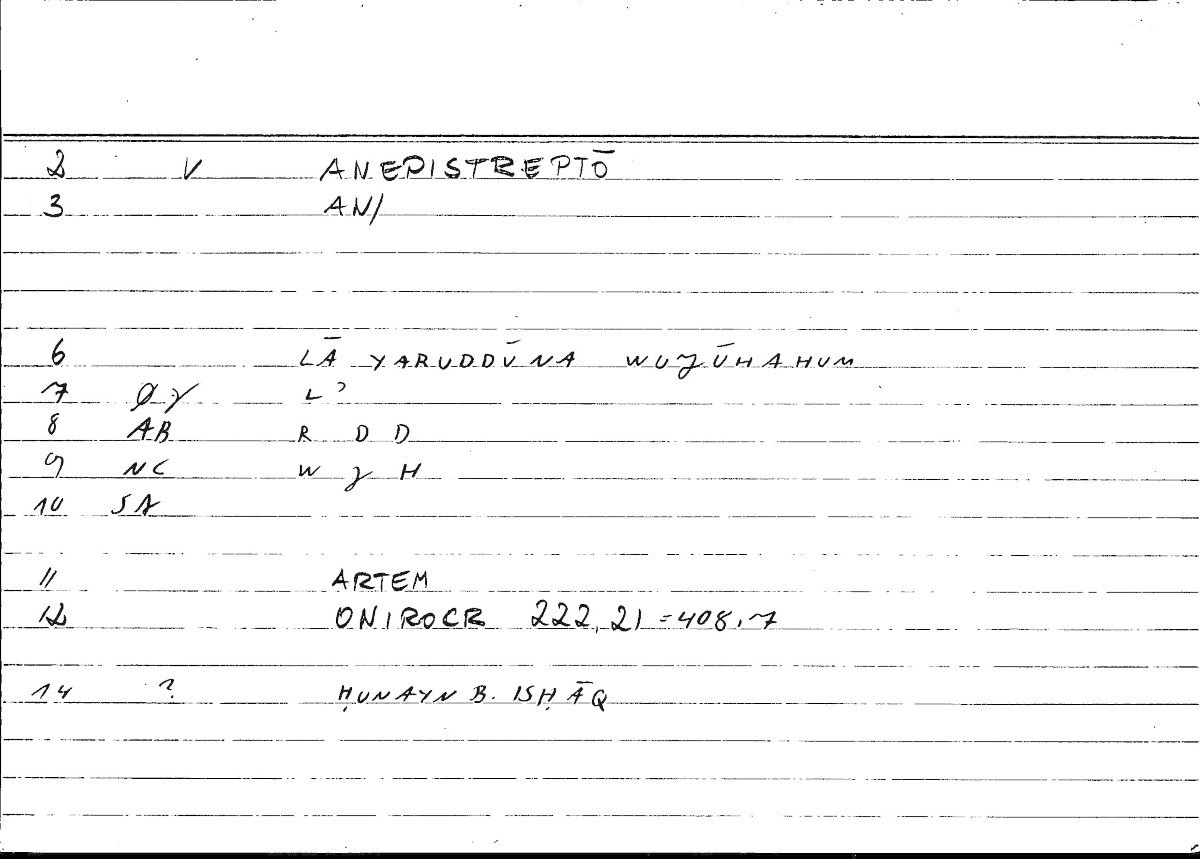 2 V ANEPISTREPTŌ
3 AN/
6 LĀ YARUDDŪNA WUJŪHAHUM
7 Øγ Lʾ
8 AB R D D
9 NC W J H
10 SA
11 ARTEM
12 ONIROCR 222,21=408,7
14 ? ḤUNAYN B. ISḤĀQ